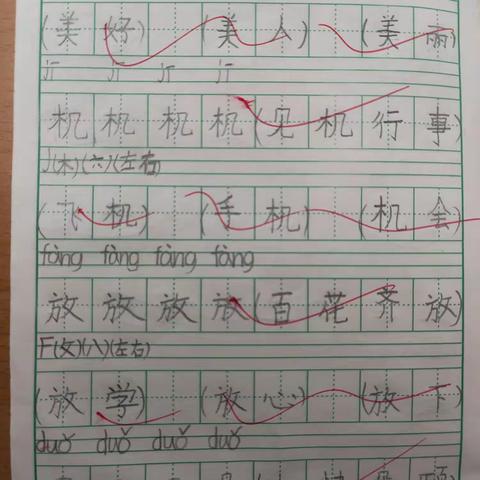 (美好) (美人) (美丽)
jī jī jī jī
机机机机(见机行事)
J(木)(六)(左右)
(飞机) (手机) (机会)
fàng fàng fàng fàng
放放放放(百花齐放)
F(攵)(八)(左右)
(放学) (放心) (放下)
duǒ duǒ duǒ duǒ